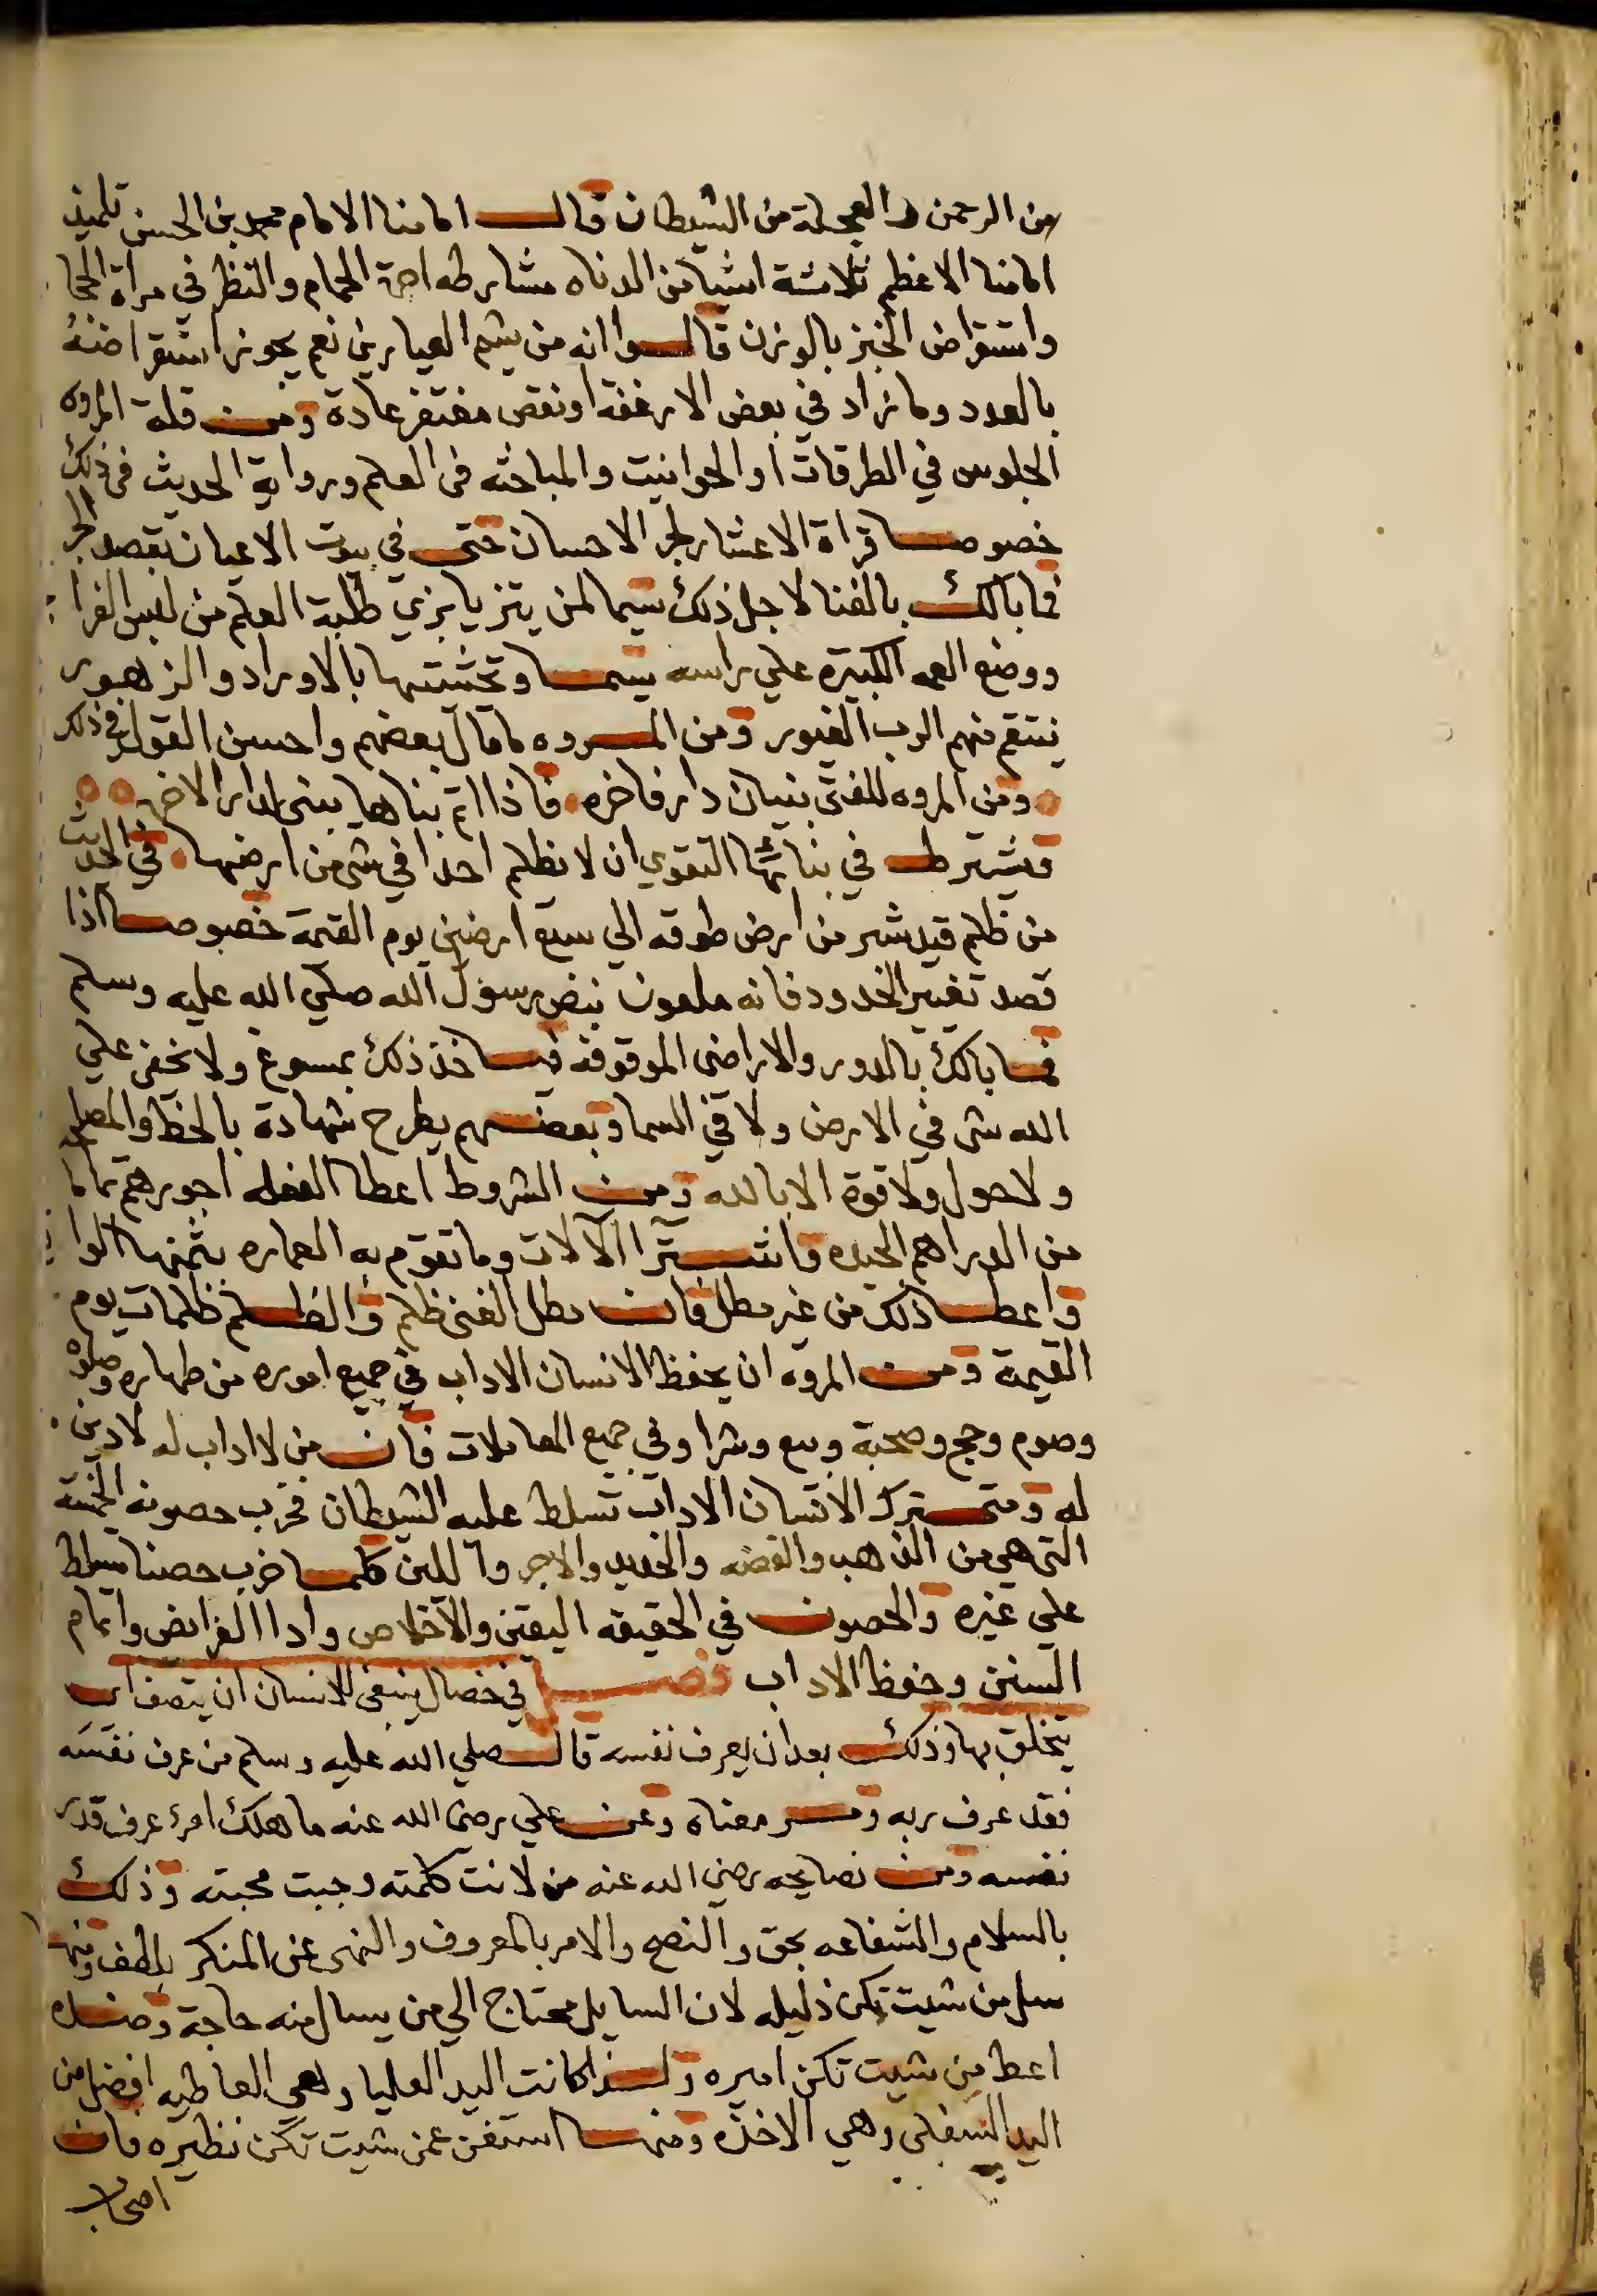 من الرحمن والعجلة من الشيطان قال امامنا الامام محمد بن الحسن تلميذ
امامنا الاعظم ثلاثة اشيا من الدناه مشارطه اجرة الحمام والنظر في مراة الحجا
واستقراض الخبز بالوزن قالوا انه من شيم العيارين نعم يجوز استقراضه
بالعدد وما زاد في بعض الارغفة او نقص مغتفر عادة ومن قلة المروه
الجلوس في الطرقات او الحوانيت والمباحثه في العلم ورواية الحديث في ذلك
خصوصا قراة الاعشار لجر الاحسان حتى في بيوت الاعيان بقصد الجر
فما بالك بالغنا لاجل ذلك سيما لمن يتزيا بزي طلبة العلم من لبس الفرا
ووضع العمه الكبيرة علي راسه سيما وتحشيتها بالاوراد والزهور
ينتقم منهم الرب الغيور ومن المروه ما قال بعضهم واحسن القول في ذلك
ومن المروه للفتى بنيان دار فاخره فاذا اتم بناها يبنى لدار الاخره
ويشترط في بنائها التقوي ان لا يظلم احدا في شي من ارضها في الحديث
من ظلم قيد شبر من ارض طوقه الي سبع ارضين يوم القيمة خصوصا اذا
قصد تغيير الحدود فانه ملعون بنص رسول الله صلي الله عليه وسلم
فما بالك بالدور والاراضى الموقوفه فياخذ ذلك بمسوغ ولا يخفى علي
الله شى في الارض ولا في السما وبعضهم يطرح شهادة بالخط والمصلي
ولا حول ولا قوة الا بالله ومن الشروط اعطا الفعله اجورهم تماما
من الدراهم الجيده واشترا الآلات وما تقوم به العماره بثمنها
واعطا ذلك من غير مطل فان مطل الغنى ظلم والظلم ظلمات يوم
القيمة ومن المروه ان يحفظ الانسان الاداب في جميع اموره من طهاره وصلاه
وصوم وحج وصحبة وبيع وشرا وفي جميع المعاملات فان من لا اداب له لا دين
له ومتى ترك الانسان الاداب تسلط عليه الشيطان فخرب حصونه الخمسة
التى هي من الذهب والفضه والحديد والاجر واللبن كلما خرب حصنا تسلط
علي غيره والحصون في الحقيقه اليقين والاخلاص وادا الفرايض واتمام
السنن وحفظ الاداب فصل في خصال ينبغى للانسان ان يتصف اى
يتخلق بها وذلك بعد ان يعرف نفسه قال صلي الله عليه وسلم من عرف نفسه
فقد عرف ربه ومر معناه وعن علي رضى الله عنه ما هلك امرئ عرف قدر
نفسه ومن نصايحه رضي الله عنه من لانت كلمته وجبت محبته وذلك
بالسلام والشفاعه بحق والنصح والامر بالمعروف والنهى عن المنكر بلطف ومنها
سل من شيت تكن ذليله لان السايل محتاج الي من يسال منه حاجة وضده
اعط من شيت تكن اميره ولذا كانت اليد العليا وهى العاطيه افضل من
اليد السفلى وهي الاخذه ومنها استغن عمن شيت تكن نظيره فان
اصحاب